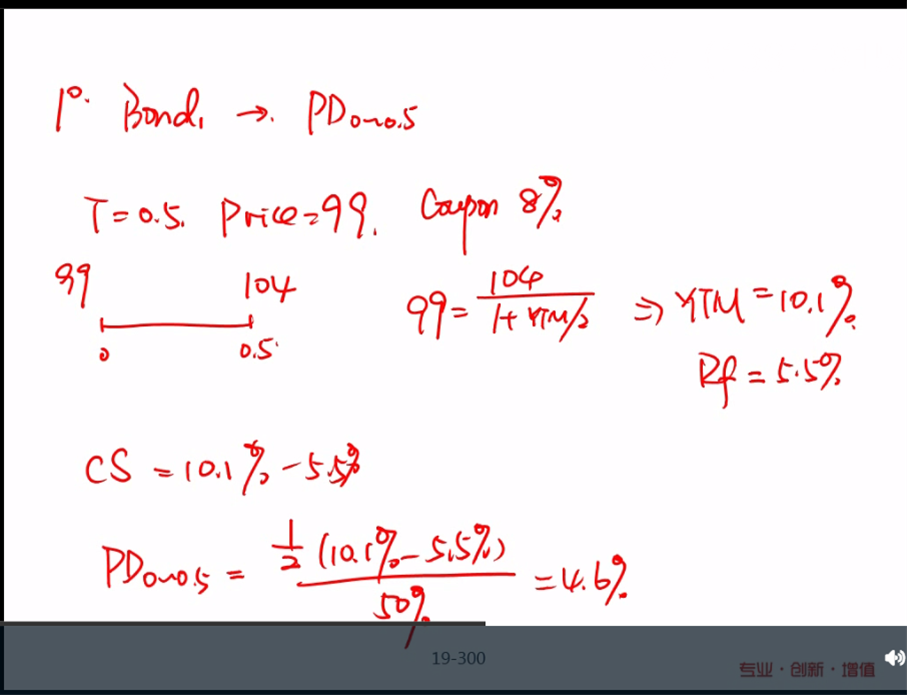 1°. Bond₁ → PD₀~₀.₅
T=0.5. Price=99. Coupon 8%
99 104
0 0.5
99 = 104 / 1+YTM/2 ⇒ YTM=10.1%
Rf = 5.5%
CS = 10.1% - 5.5%
PD₀~₀.₅ = ½(10.1% - 5.5%) / 50% = 4.6%
19-300
专业·创新·增值